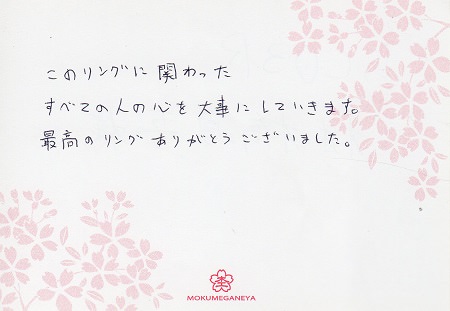 このリングに関わった
すべての人の心を大事にしていきます。
最高のリングありがとうございました。
MOKUMEGANEYA